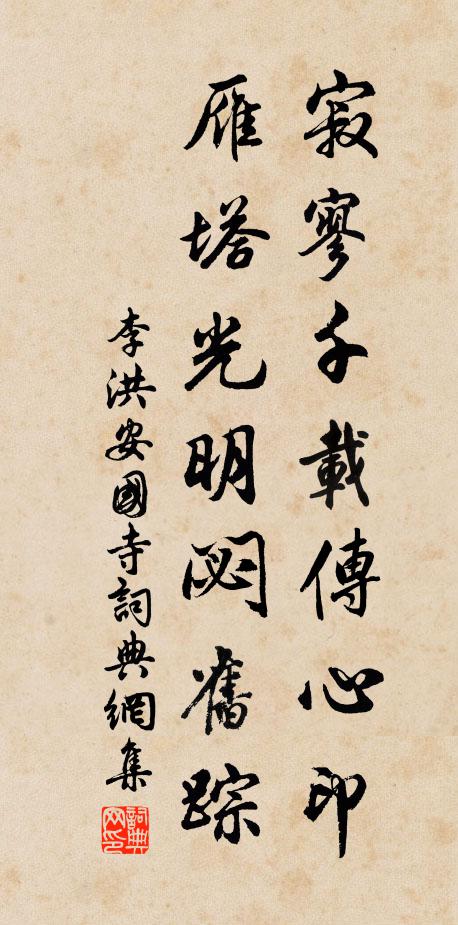 寂寥千載傳心印
雁塔光明閟舊踪
李洪安國寺詞典網集
詞典网印